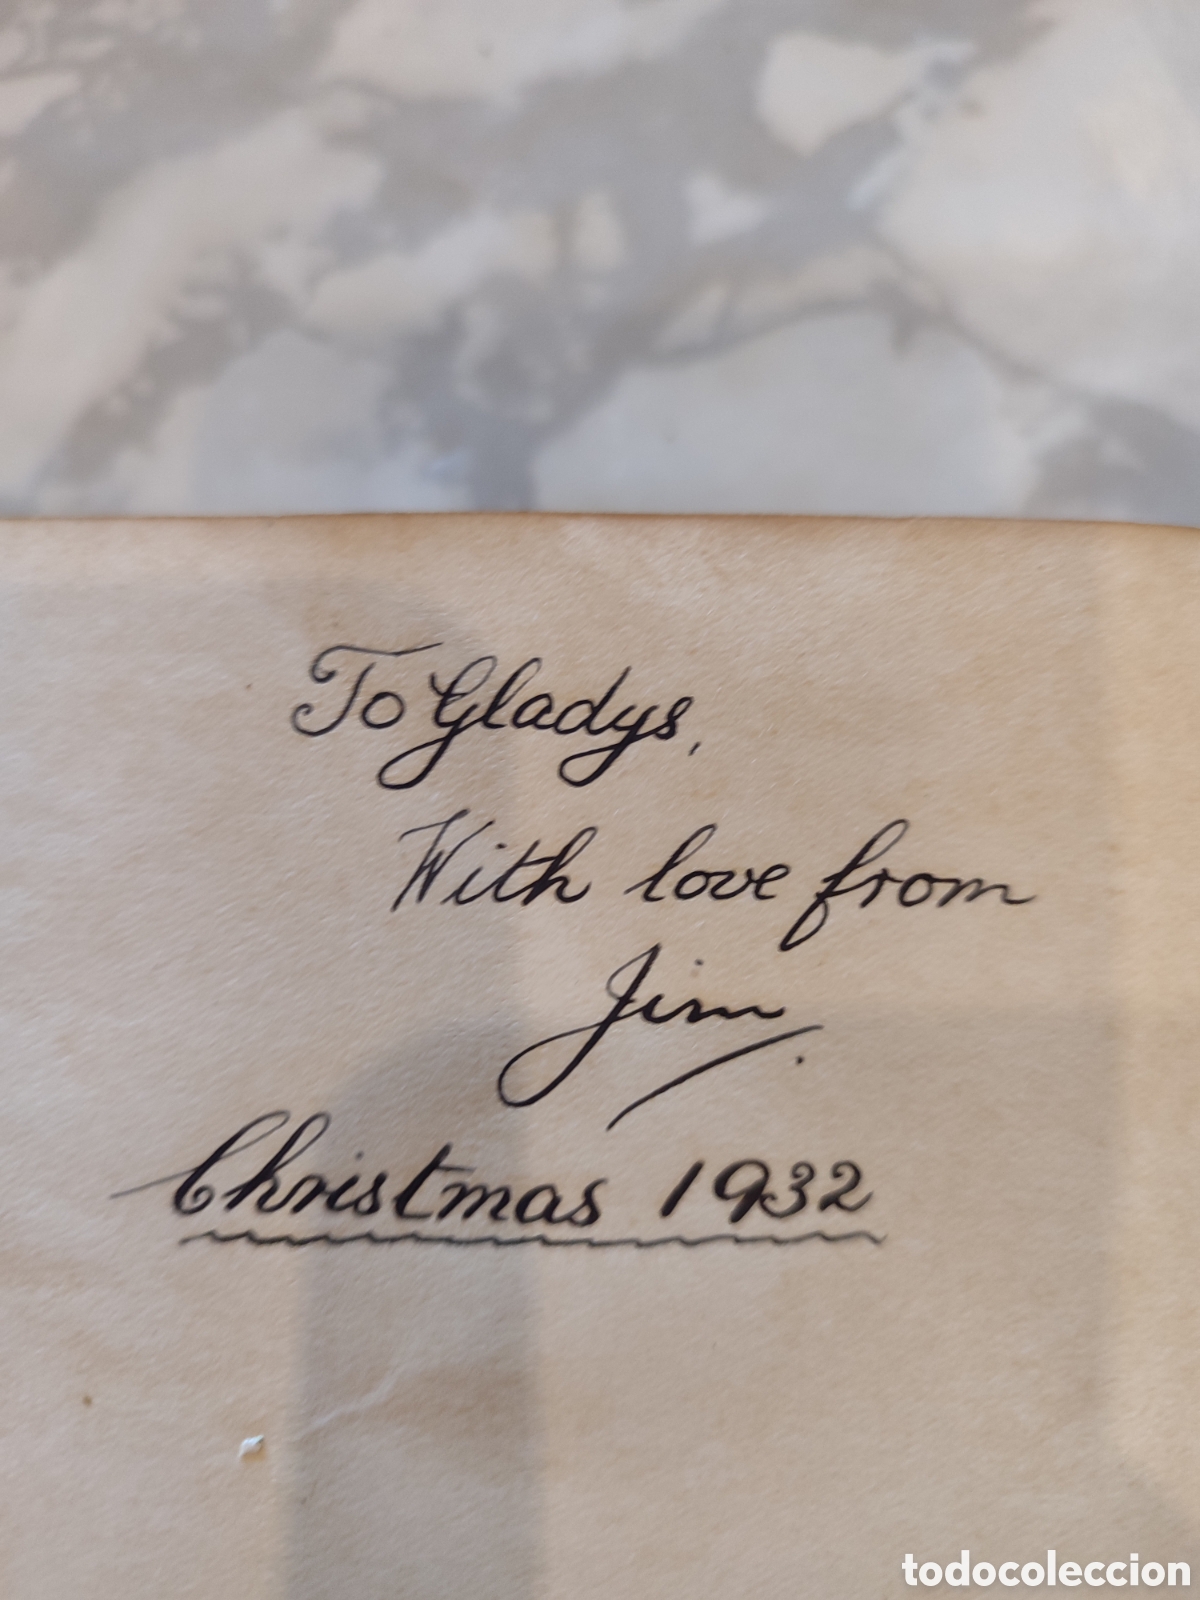 To Gladys,
With love from
Jim.
Christmas 1932
todocoleccion